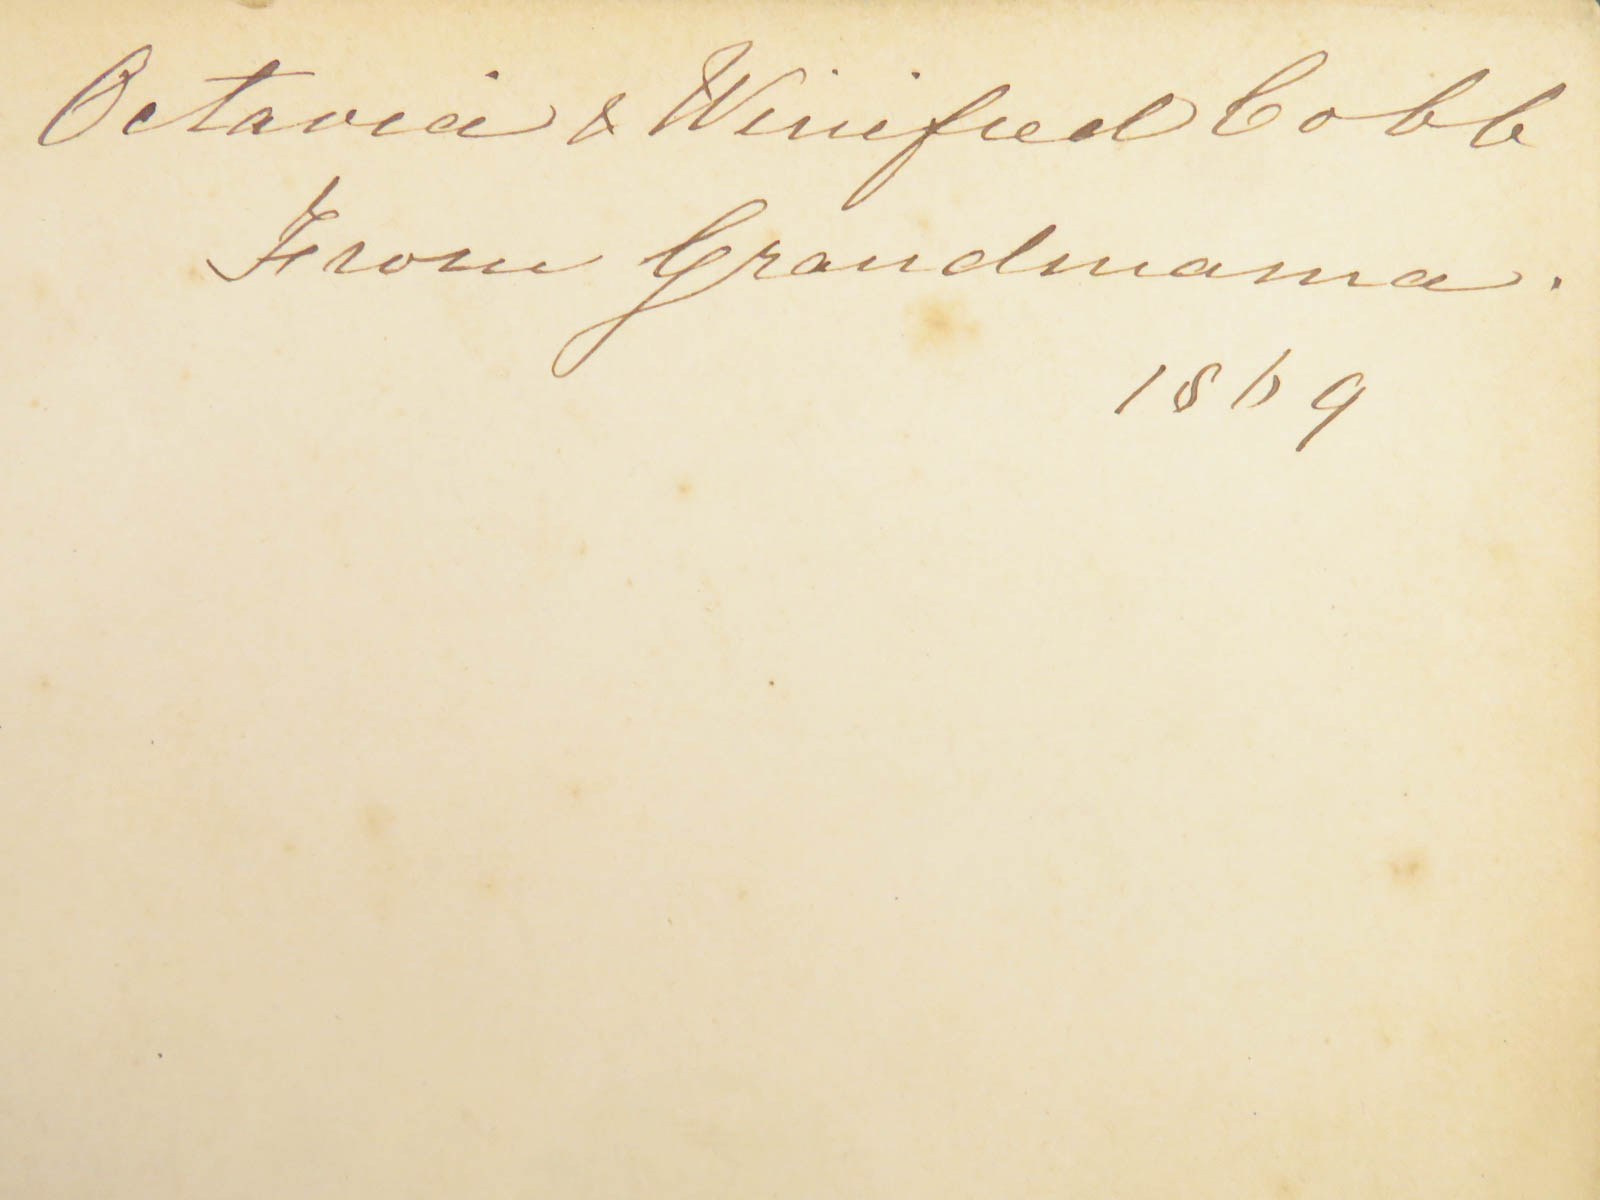 Octavia & Winifred Cobb
From Grandmama.
1869